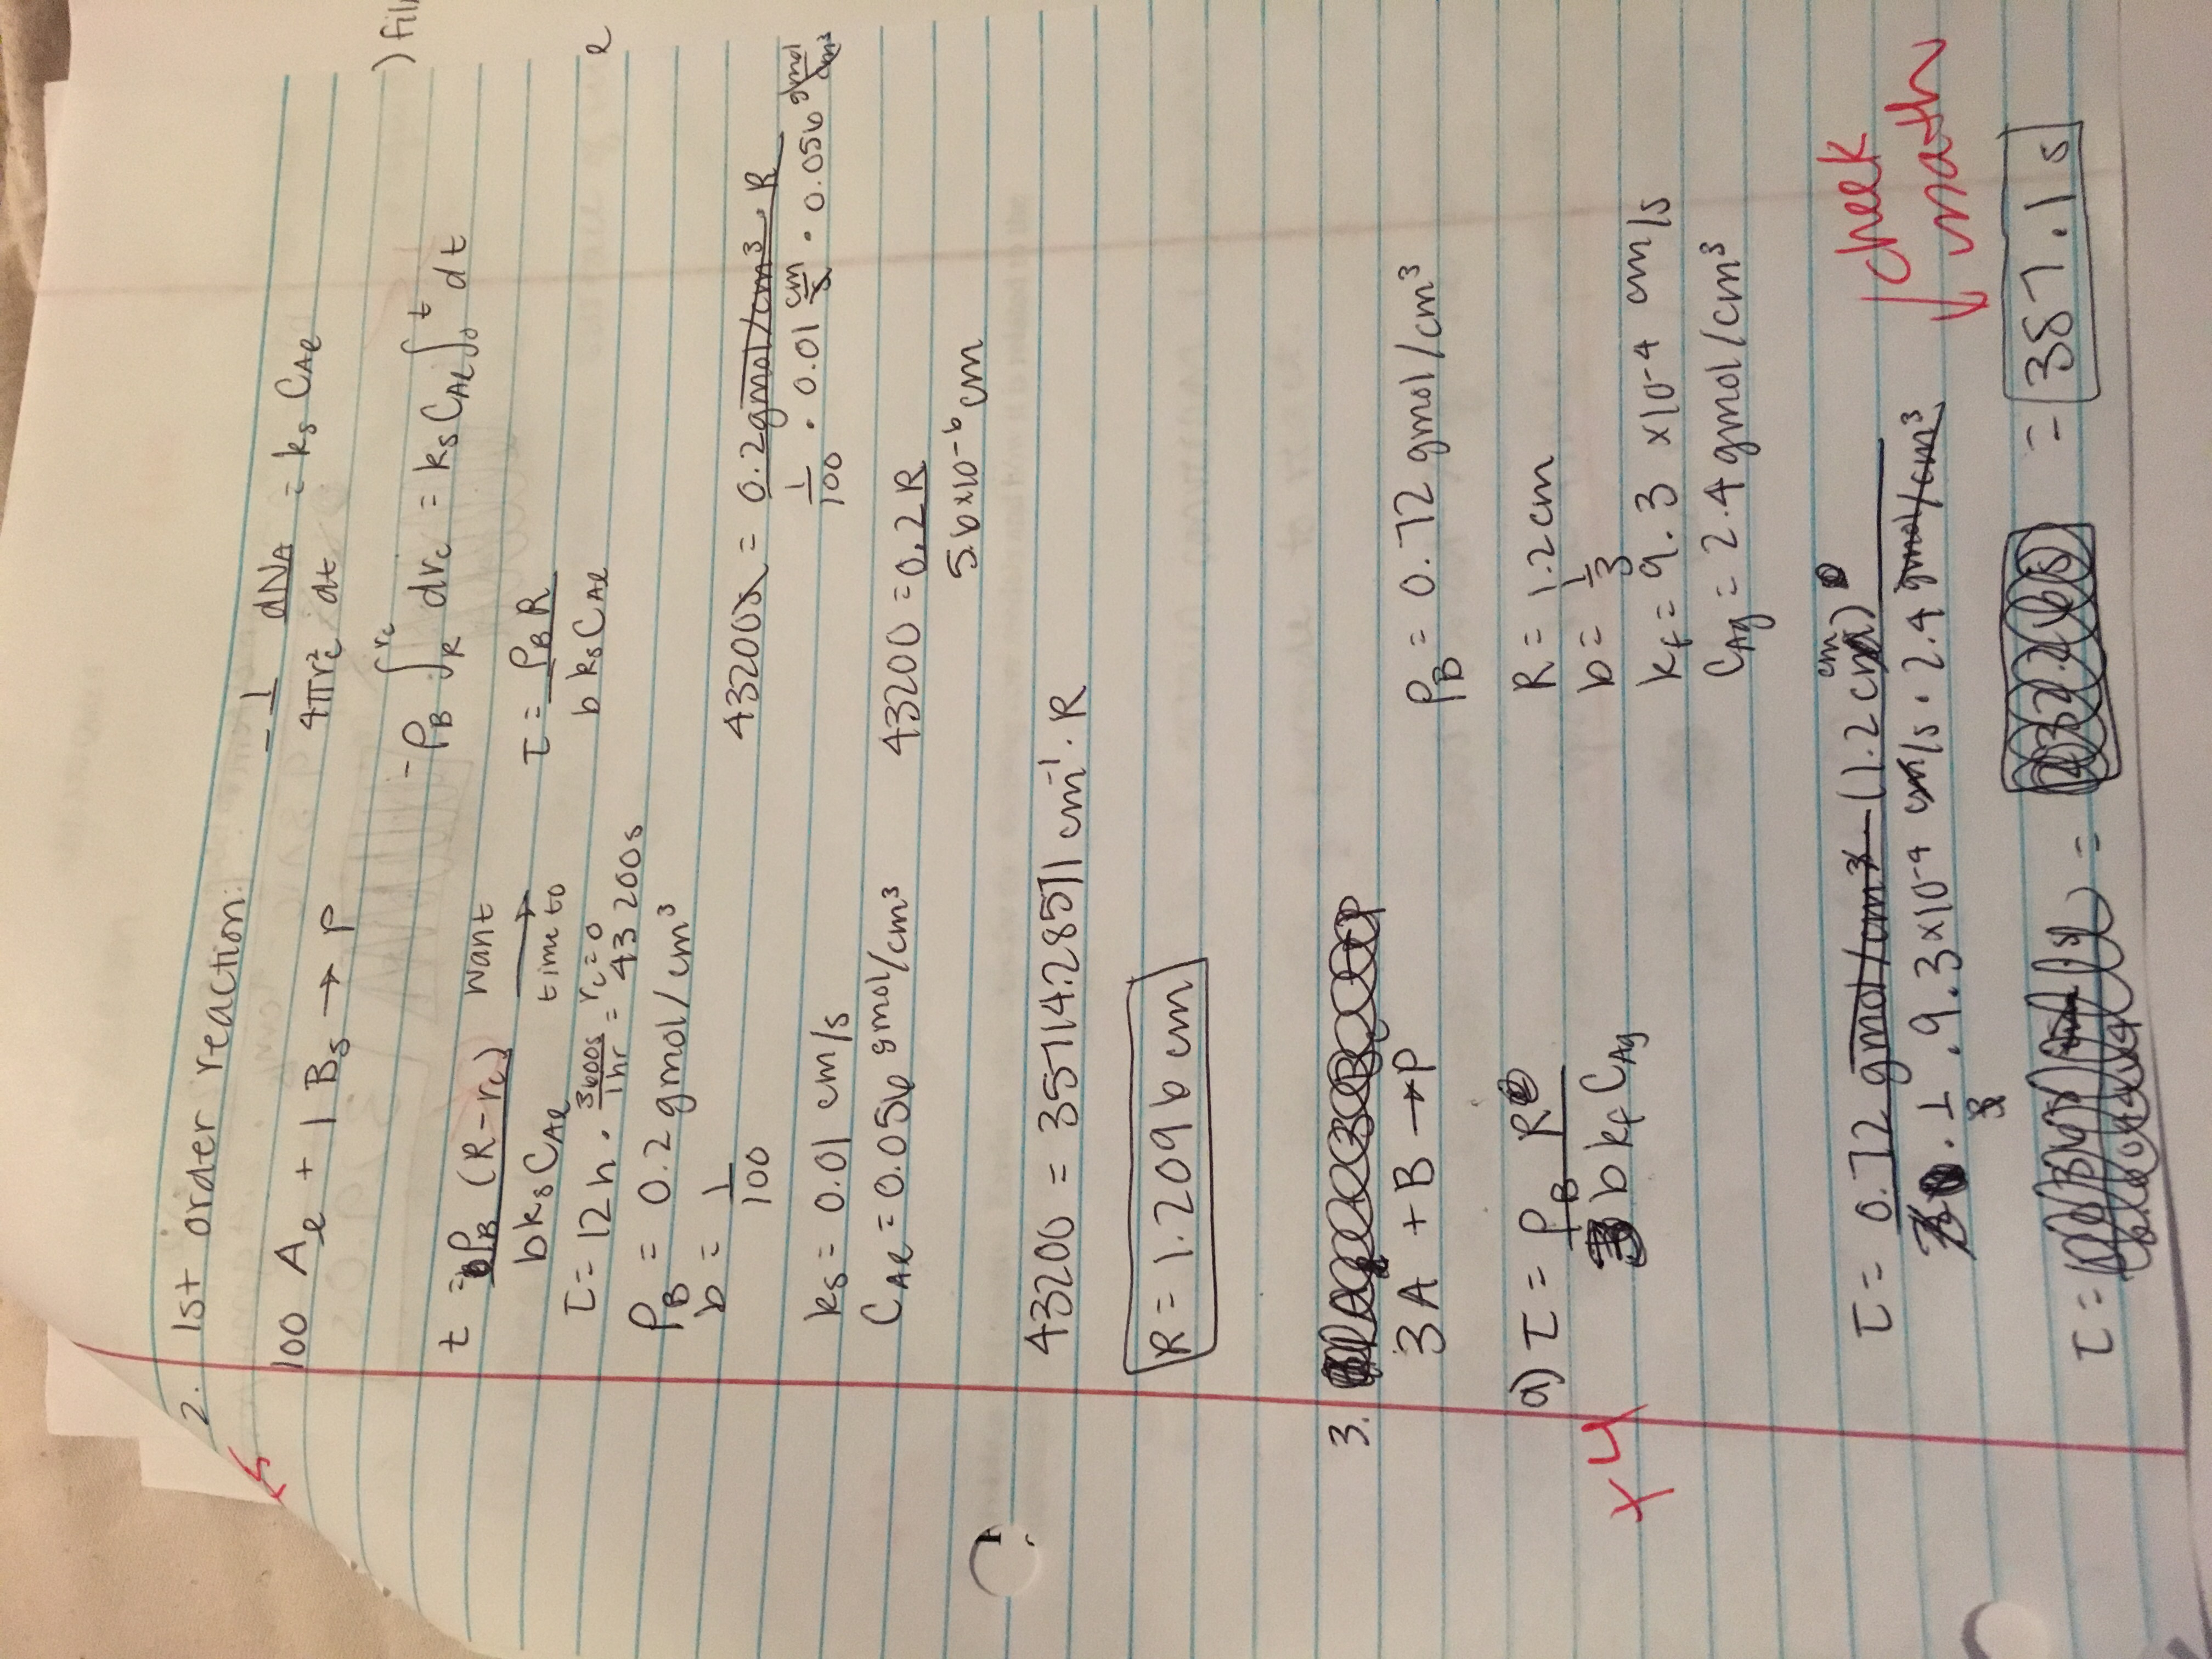 2. 1st order reaction:
5
100 Aℓ + 1 Bs → P
- 1/4πrc² dNA/dt = ks CAℓ
-ρB ∫R^rc drc = ks CAℓ ∫0^t dt
) fil
t = ρB (R-rc) / b ks CAℓ want time to rc = 0 → τ = ρB R / b ks CAℓ
e
τ = 12h · 3600s/1hr = 43200s
ρB = 0.2 gmol/cm³
b = 1/100
ks = 0.01 cm/s
CAℓ = 0.056 gmol/cm³
43200s = 0.2 gmol/cm³ · R / 1/100 · 0.01 cm/s · 0.056 gmol/cm³
43200 = 0.2 R / 5.6x10⁻⁶ cm
43200 = 35714.28571 cm⁻¹ · R
R = 1.2096 cm
3.
3A + B → P
ρB = 0.72 gmol/cm³
a) τ = ρB R / b kf CAg
+4
R = 1.2 cm
b = 1/3
kf = 9.3 x10⁻⁴ cm/s
CAg = 2.4 gmol/cm³
τ = 0.72 gmol/cm³ · (1.2 cm) / · 1/3 · 9.3x10⁻⁴ cm/s · 2.4 gmol/cm³
check
math
τ = = = 387.1 s